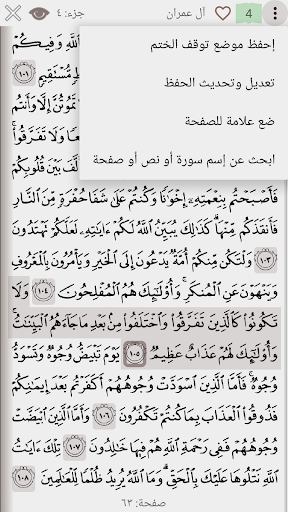 جزء: ٤ آل عمران 4
إحفظ موضع توقف الختم
تعديل وتحديث الحفظ
ضع علامة للصفحة
ابحث عن إسم سورة أو نص أو صفحة
ٱللَّهِ وَفِيكُمْ
مُّسْتَقِيمٍ ١٠١
تَمُوتُنَّ إِلَّا وَأَنتُم
وَلَا تَفَرَّقُوا۟
بَيْنَ قُلُوبِكُمْ
فَأَصْبَحْتُم بِنِعْمَتِهِۦٓ إِخْوَٰنًا وَكُنتُمْ عَلَىٰ شَفَا حُفْرَةٍ مِّنَ ٱلنَّارِ
فَأَنقَذَكُم مِّنْهَا ۗ كَذَٰلِكَ يُبَيِّنُ ٱللَّهُ لَكُمْ ءَايَٰتِهِۦ لَعَلَّكُمْ تَهْتَدُونَ
١٠٣ وَلْتَكُن مِّنكُمْ أُمَّةٌ يَدْعُونَ إِلَى ٱلْخَيْرِ وَيَأْمُرُونَ بِٱلْمَعْرُوفِ
وَيَنْهَوْنَ عَنِ ٱلْمُنكَرِ ۚ وَأُو۟لَٰٓئِكَ هُمُ ٱلْمُفْلِحُونَ ١٠٤ وَلَا
تَكُونُوا۟ كَٱلَّذِينَ تَفَرَّقُوا۟ وَٱخْتَلَفُوا۟ مِنۢ بَعْدِ مَا جَآءَهُمُ ٱلْبَيِّنَٰتُ ۚ
وَأُو۟لَٰٓئِكَ لَهُمْ عَذَابٌ عَظِيمٌ ١٠٥ يَوْمَ تَبْيَضُّ وُجُوهٌ وَتَسْوَدُّ
وُجُوهٌ ۚ فَأَمَّا ٱلَّذِينَ ٱسْوَدَّتْ وُجُوهُهُمْ أَكَفَرْتُم بَعْدَ إِيمَٰنِكُمْ
فَذُوقُوا۟ ٱلْعَذَابَ بِمَا كُنتُمْ تَكْفُرُونَ ١٠٦ وَأَمَّا ٱلَّذِينَ ٱبْيَضَّتْ
وُجُوهُهُمْ فَفِى رَحْمَةِ ٱللَّهِ هُمْ فِيهَا خَٰلِدُونَ ١٠٧ تِلْكَ ءَايَٰتُ
ٱللَّهِ نَتْلُوهَا عَلَيْكَ بِٱلْحَقِّ ۗ وَمَا ٱللَّهُ يُرِيدُ ظُلْمًا لِّلْعَٰلَمِينَ ١٠٨
صفحة: ٦٣